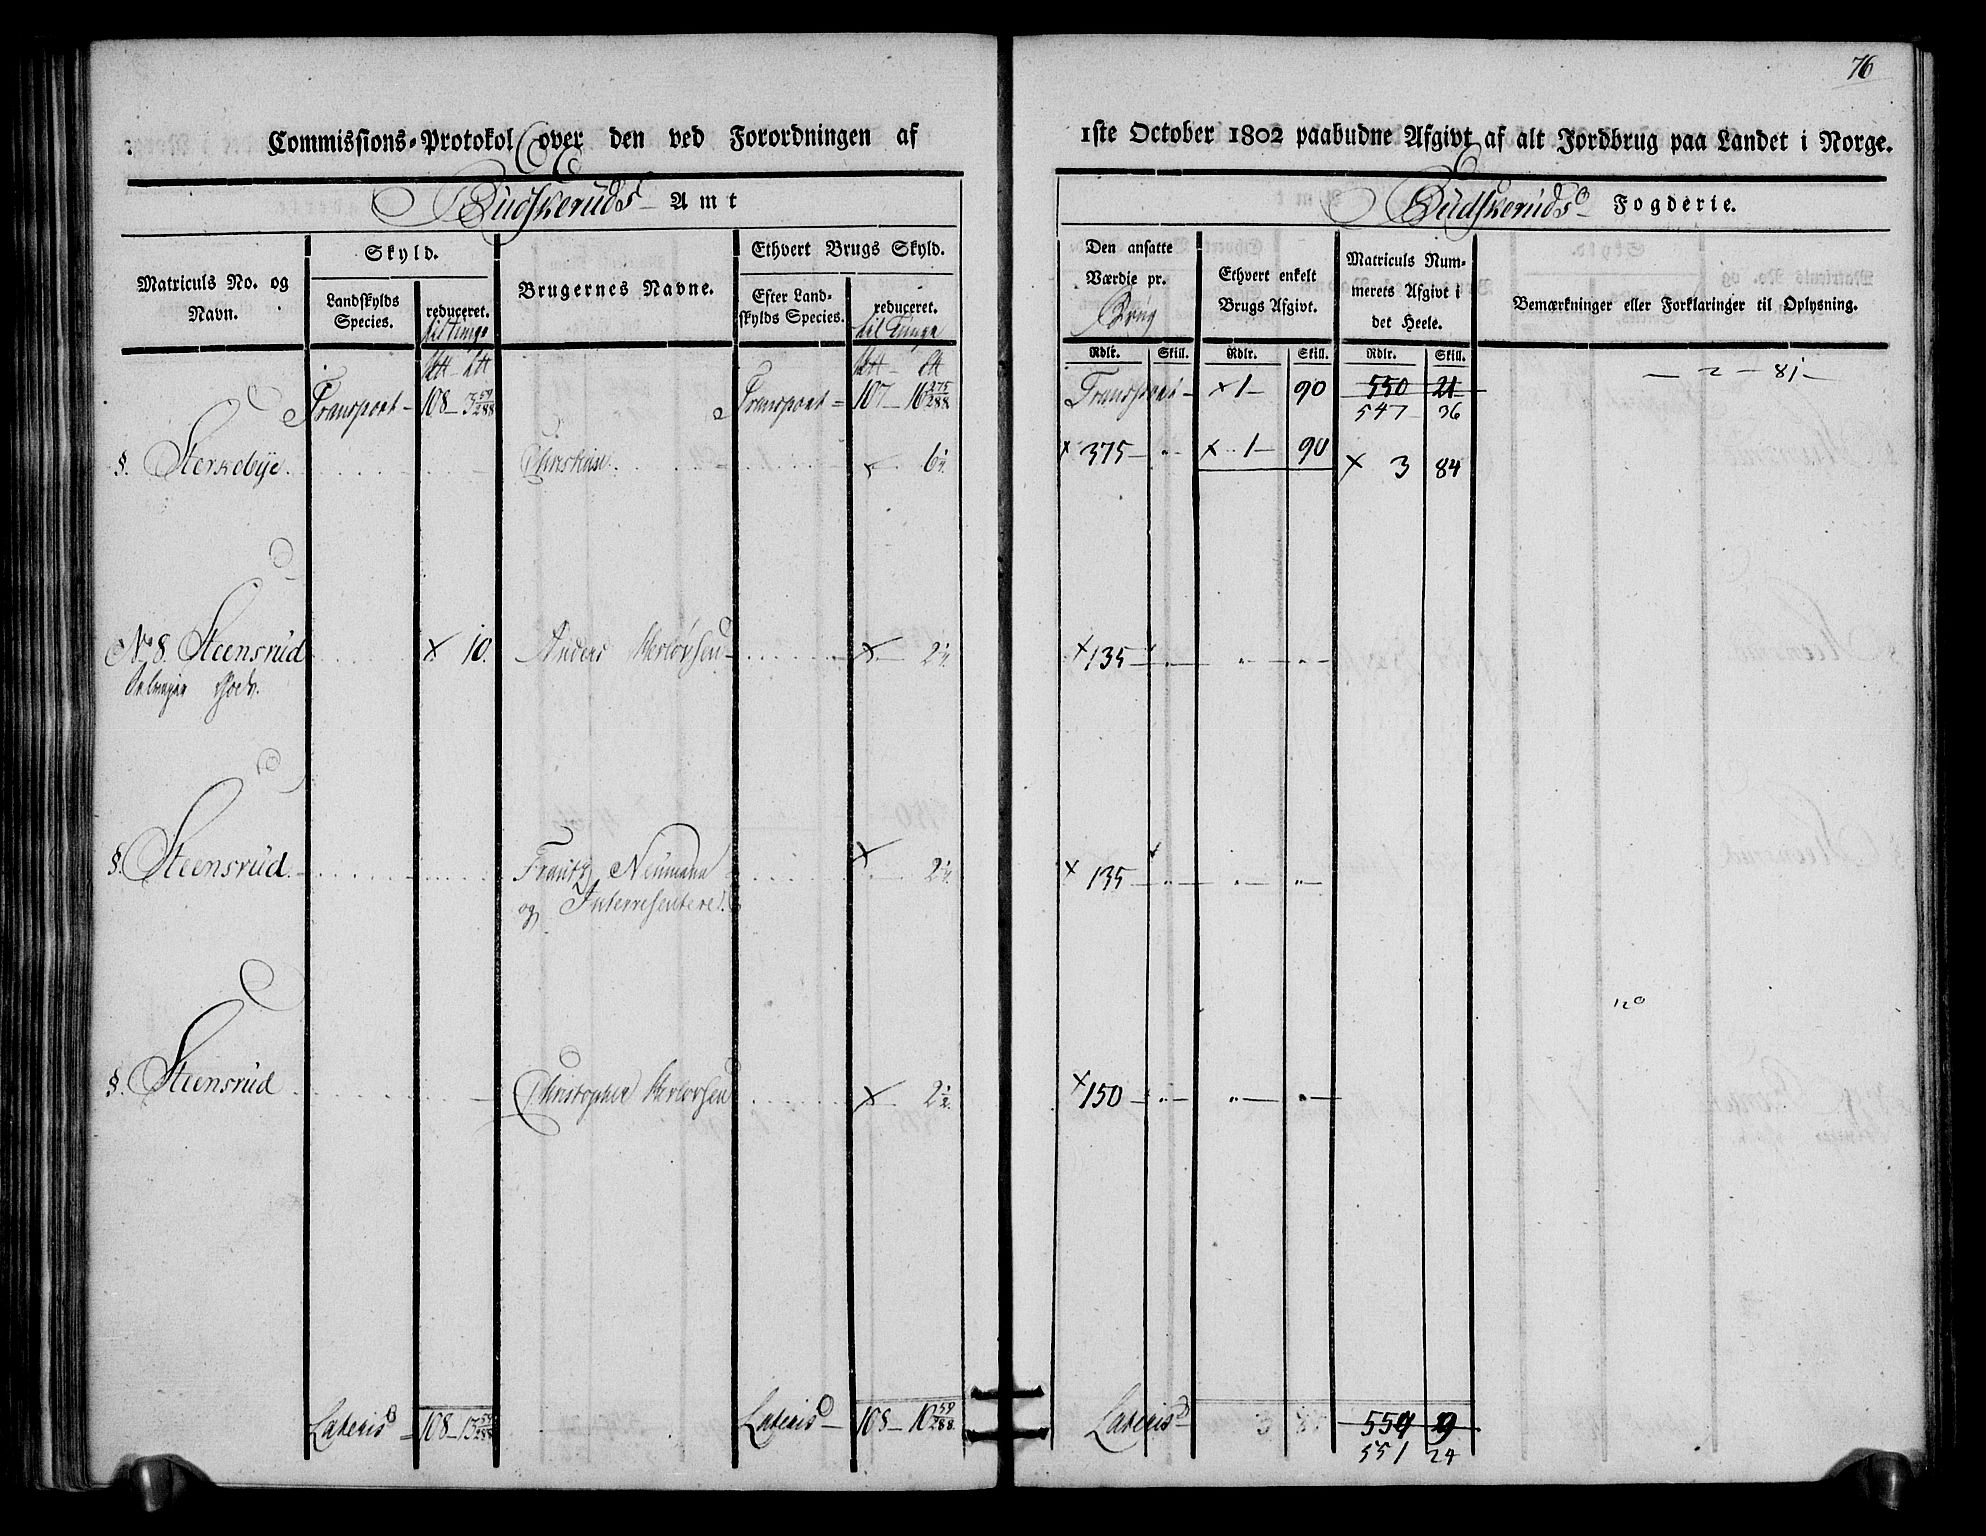 76
Commissions-Protokol over den ved Forordningen af 1ste October 1802 paabudne Afgivt af alt Jordbrug paa Landet i Norge.
Budskeruds Amt
Budskeruds Fogderie.
Matriculs No. og Navn.
Skyld.
Landskylds Species.
reduceret.
til Tunge
Brugernes Navne.
Ethvert Brugs Skyld.
Efter Landskylds Species.
reduceret.
til Tunge
Den ansatte Værdie pr.
Brug
Rdlr. Skill.
Ethvert enkelt Brugs Afgivt.
Rdlr. Skill.
Matriculs Nummerets Afgivt i det Heele.
Rdlr. Skill.
Bemærkninger eller Forklaringer til Oplysning.
Transport – 108 – 3 59/288 Transport – 107 – 16 275/288 Transport – × 1 – 90 550 21 – 2 – 81 –
547 36
§. Sterkebye. Christian 6 × 375 – „ × 1 – 90 × 3 84
No 8. Steensrud × 10. Anders Herlovsen × 2½ × 135 – „ – „ – „ –
Selvejer Gods.
§. Steensrud Frantz Neumann × 2½ × 135 – „ – „ – „ –
og Interressentere.
120
§. Steensrud Christopher Herlovsen × 2½. × 150 – „ – „ – „ –
Lateris – 108 – 13 59/288 Lateris – 108 – 10 59/288. Lateris 554 9
551 24